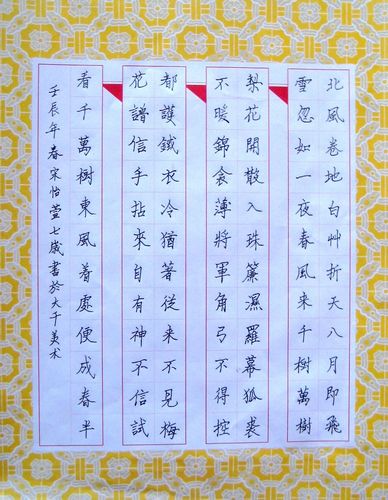 北風卷地白艸折天八月即飛
雪忽如一夜春風來千樹萬樹
梨花開散入珠簾濕羅幕狐裘
不暖錦衾薄將軍角弓不得控
都護鐵衣冷猶著從来不見梅
花譜信手拈來自有神不信試
看千萬樹東風着處便成春半
壬辰年春宋怡萱七歲書於大千美术